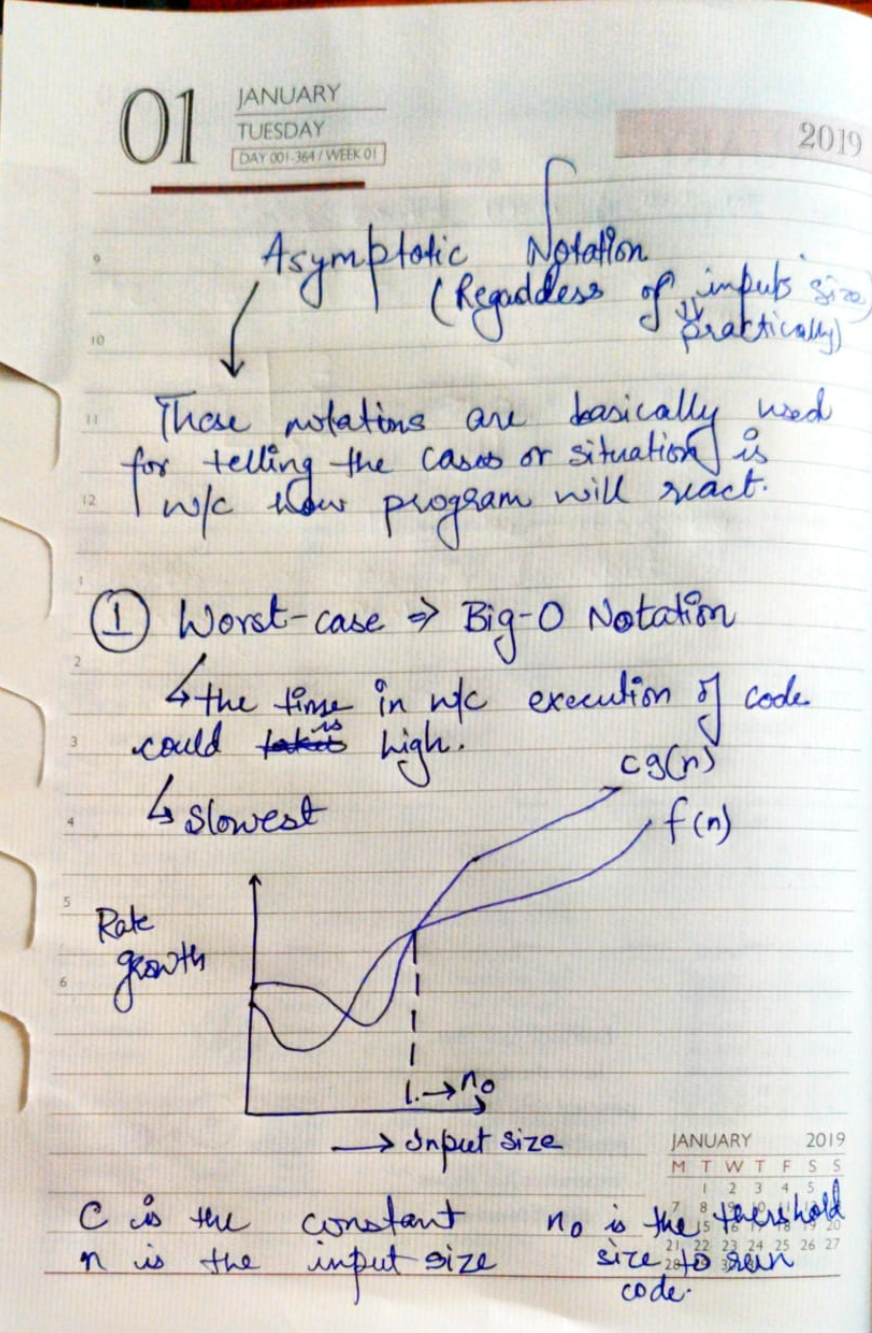 01
JANUARY
TUESDAY
DAY 001-364 / WEEK 01
2019
Asymptotic Notation
(Regaddess of inputs size)
practically)
These notations are basically used
for telling the cases or situation is
w/c how program will react.
① Worst-case ⇒ Big-O Notation
↳ the time in w/c execution of code
could is high.
↳ Slowest
cg(n)
f(n)
Rate
growth
→ n₀
→ Input size
C is the constant
n is the input size
n₀ is the thershold
size to run
code.
9
10
11
12
1
2
3
4
5
6
JANUARY 2019
M T W T F S S
1 2 3 4 5
7 8
15 20
21 22 23 24 25 26 27
28